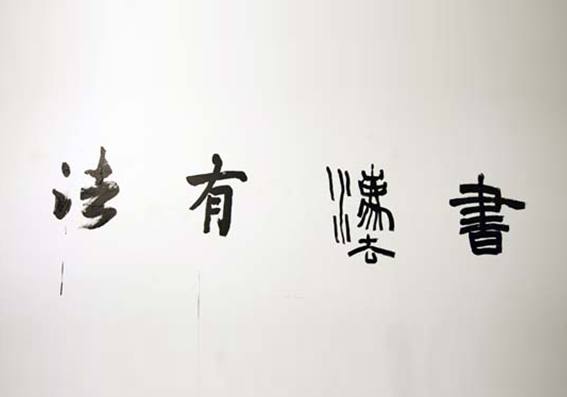 書灋有法